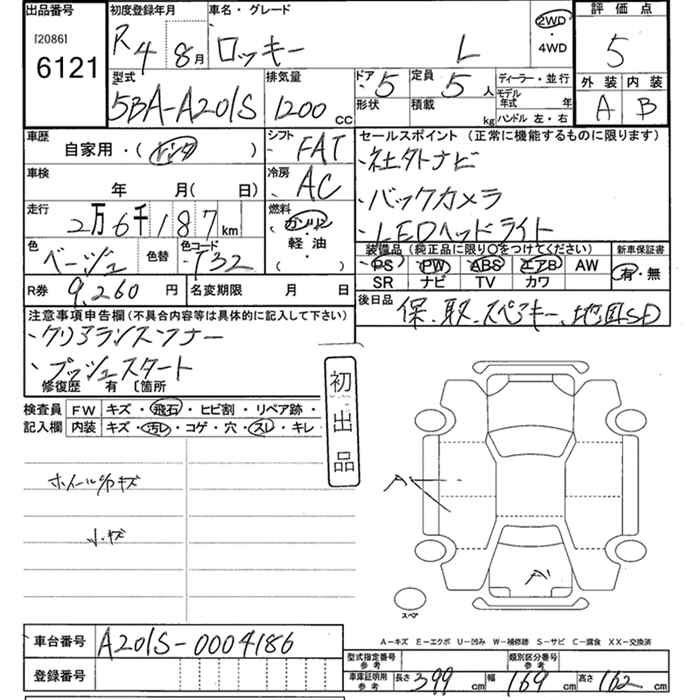 出品番号 初度登録年月 車名・グレード 評価点
[2086] 6121 R4 8月 ロッキー L 2WD・4WD 5
外装 内装
A B
型式 排気量 ドア 5 定員 5人 ディーラー・並行
5BA-A201S 1200cc 形状 積載 kg モデル年式 年
ハンドル 左・右
車歴 シフト セールスポイント (正常に機能するものに限ります)
自家用・(レンタ) FAT ・社外ナビ
車検 冷房
年 月( 日) AC ・バックカメラ
走行 燃料
2万6千187km ガソリン ・LEDヘッドライト
軽油
( )
色 色替 色コード 装備品 (純正品に限り○をつけてください) 新車保証書
ベージュ T32 PS PW ABS エアB AW 有・無
SR ナビ TV カワ
R券 9,260円 名変期限 月 日 後日品
保、取、スペアキー、地図SD
注意事項申告欄(不具合内容等は具体的に記入して下さい)
・クリアランスソナー
・プッシュスタート
修復歴 有 〔箇所
初出品
検査員 FW キズ・飛石・ヒビ割・リペア跡・
記入欄 内装 キズ・汚レ・コゲ・穴・スレ・キレ・
ホイール キズ
小キズ
A'
A'
スペア
A-キズ E-エクボ U-凹み W-補修跡 S-サビ C-腐食 XX-交換済
車台番号 A201S-0004186
型式指定番号 参考 類別区分番号 参考
登録番号 車庫証明用 参考 長さ 399cm 幅 169cm 高さ 162cm